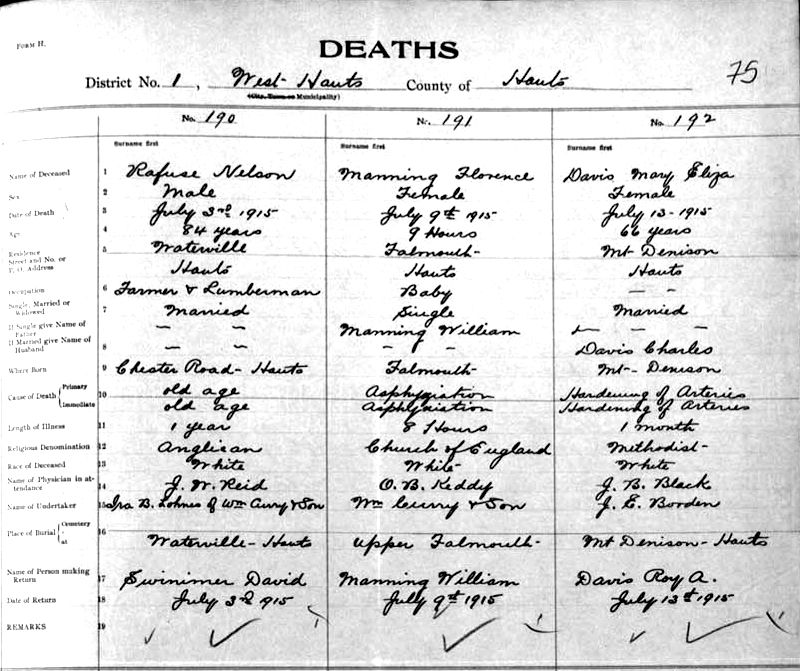 FORM H.
DEATHS
75
District No. 1, West Hants County of Hants
(City, Town or Municipality)
No. 190 No. 191 No. 192
Surname first Surname first Surname first
Name of Deceased 1 Rafuse Nelson Manning Florence Davis Mary Eliza
Sex 2 Male Female Female
Date of Death 3 July 3rd 1915 July 9th 1915 July 13-1915
Age 4 84 years 9 Hours 66 years
Residence Street and No. or P. O. Address 5 Waterville Falmouth Mt Denison
Hants Hants Hants
Occupation 6 Farmer & Lumberman Baby — —
Single, Married or Widowed 7 Married Single Married
If Single give Name of Father — — Manning William — — —
If Married give Name of Husband 8 — — — — Davis Charles
Where Born 9 Chester Road - Hants Falmouth Mt - Denison
Cause of Death Primary 10 old age Asphyxiation Hardening of Arteries
Immediate old age Asphyxiation Hardening of Arteries
Length of Illness 11 1 year 8 Hours 1 month
Religious Denomination 12 Anglican Church of England Methodist
Race of Deceased 13 White White White
Name of Physician in attendance 14 J. W. Reid O. B. Keddy J. B. Black
Name of Undertaker 15 Ira B. Lohnes of Wm Curry & Son Wm Curry & Son J. E. Borden
Place of Burial Cemetery at 16 Waterville - Hants Upper Falmouth Mt Denison - Hants
Name of Person making Return 17 Swinimer David Manning William Davis Roy A.
Date of Return 18 July 3rd 1915 July 9th 1915 July 13th 1915
REMARKS 19